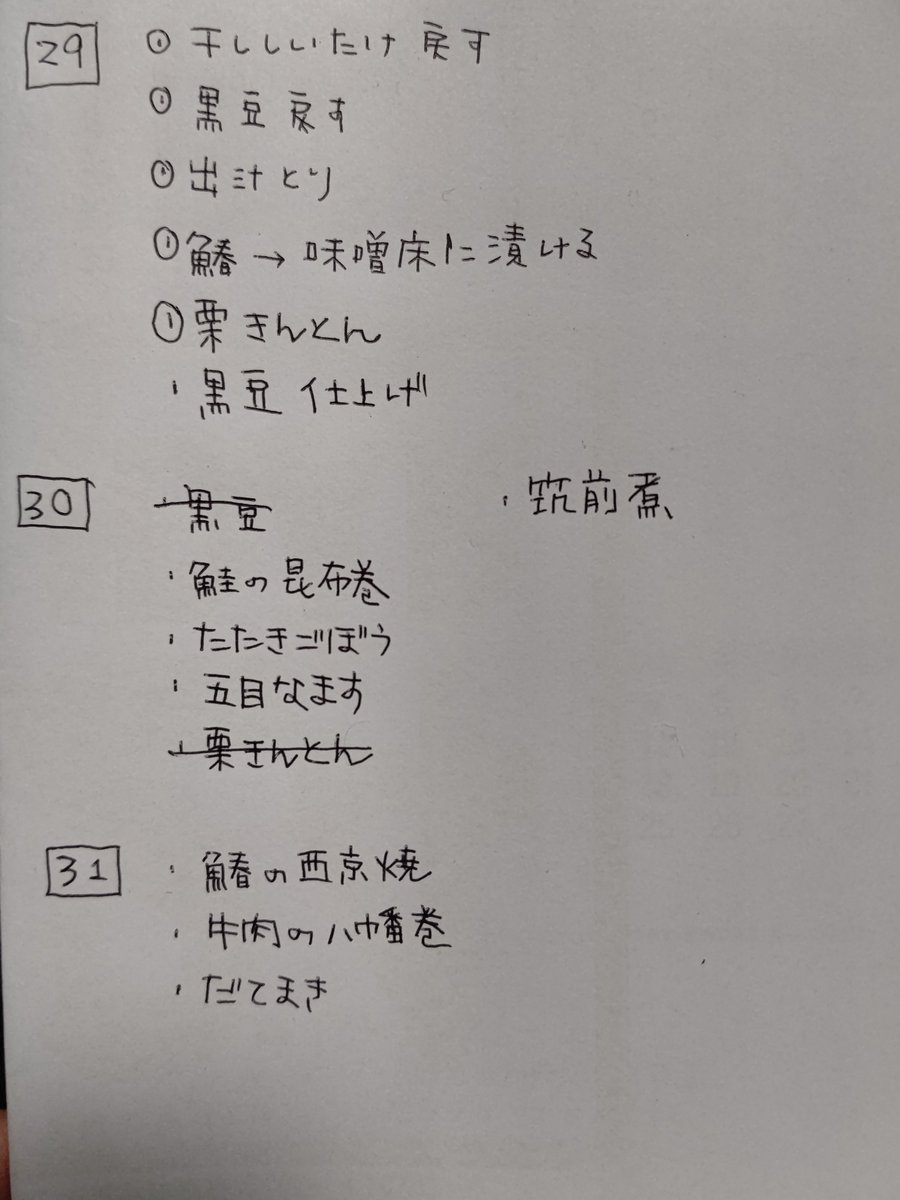 29
・干ししいたけ 戻す
・黒豆 戻す
・出汁とり
・鰆→味噌床に漬ける
・栗きんとん
・黒豆 仕上げ
30
・黒豆
・鮭の昆布巻
・たたきごぼう
・五目なます
・栗きんとん
・筑前煮
31
・鰆の西京焼
・牛肉の八幡巻
・だてまき